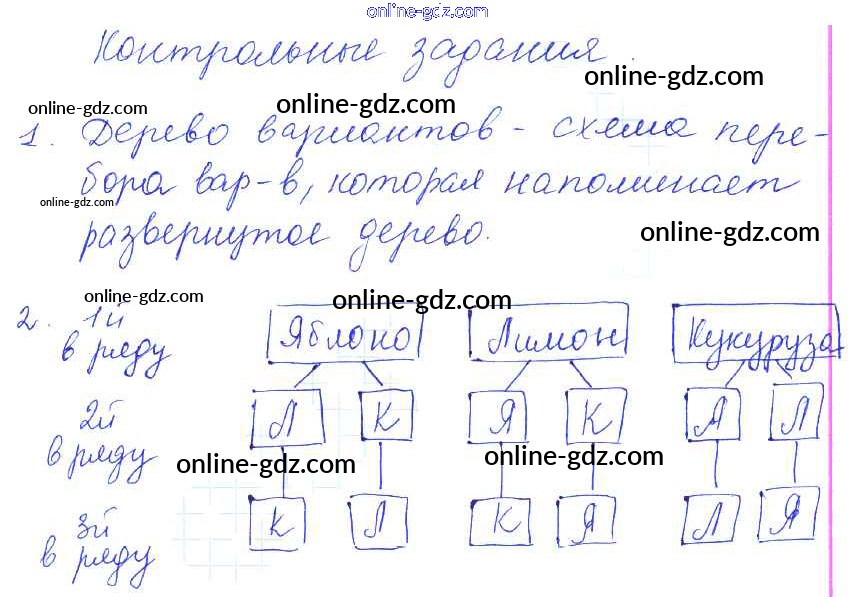 online-gdz.com
Контрольные задания.
online-gdz.com
online-gdz.com online-gdz.com
1. Дерево вариантов - схема пере-
бора вар-в, которая напоминает
online-gdz.com
развернутое дерево.
online-gdz.com
online-gdz.com online-gdz.com
2. 1й в ряду Яблоко Лимон Кукуруза
2й в ряду Л К Я К Я Л
online-gdz.com online-gdz.com
3й в ряду К Л К Я Л Я